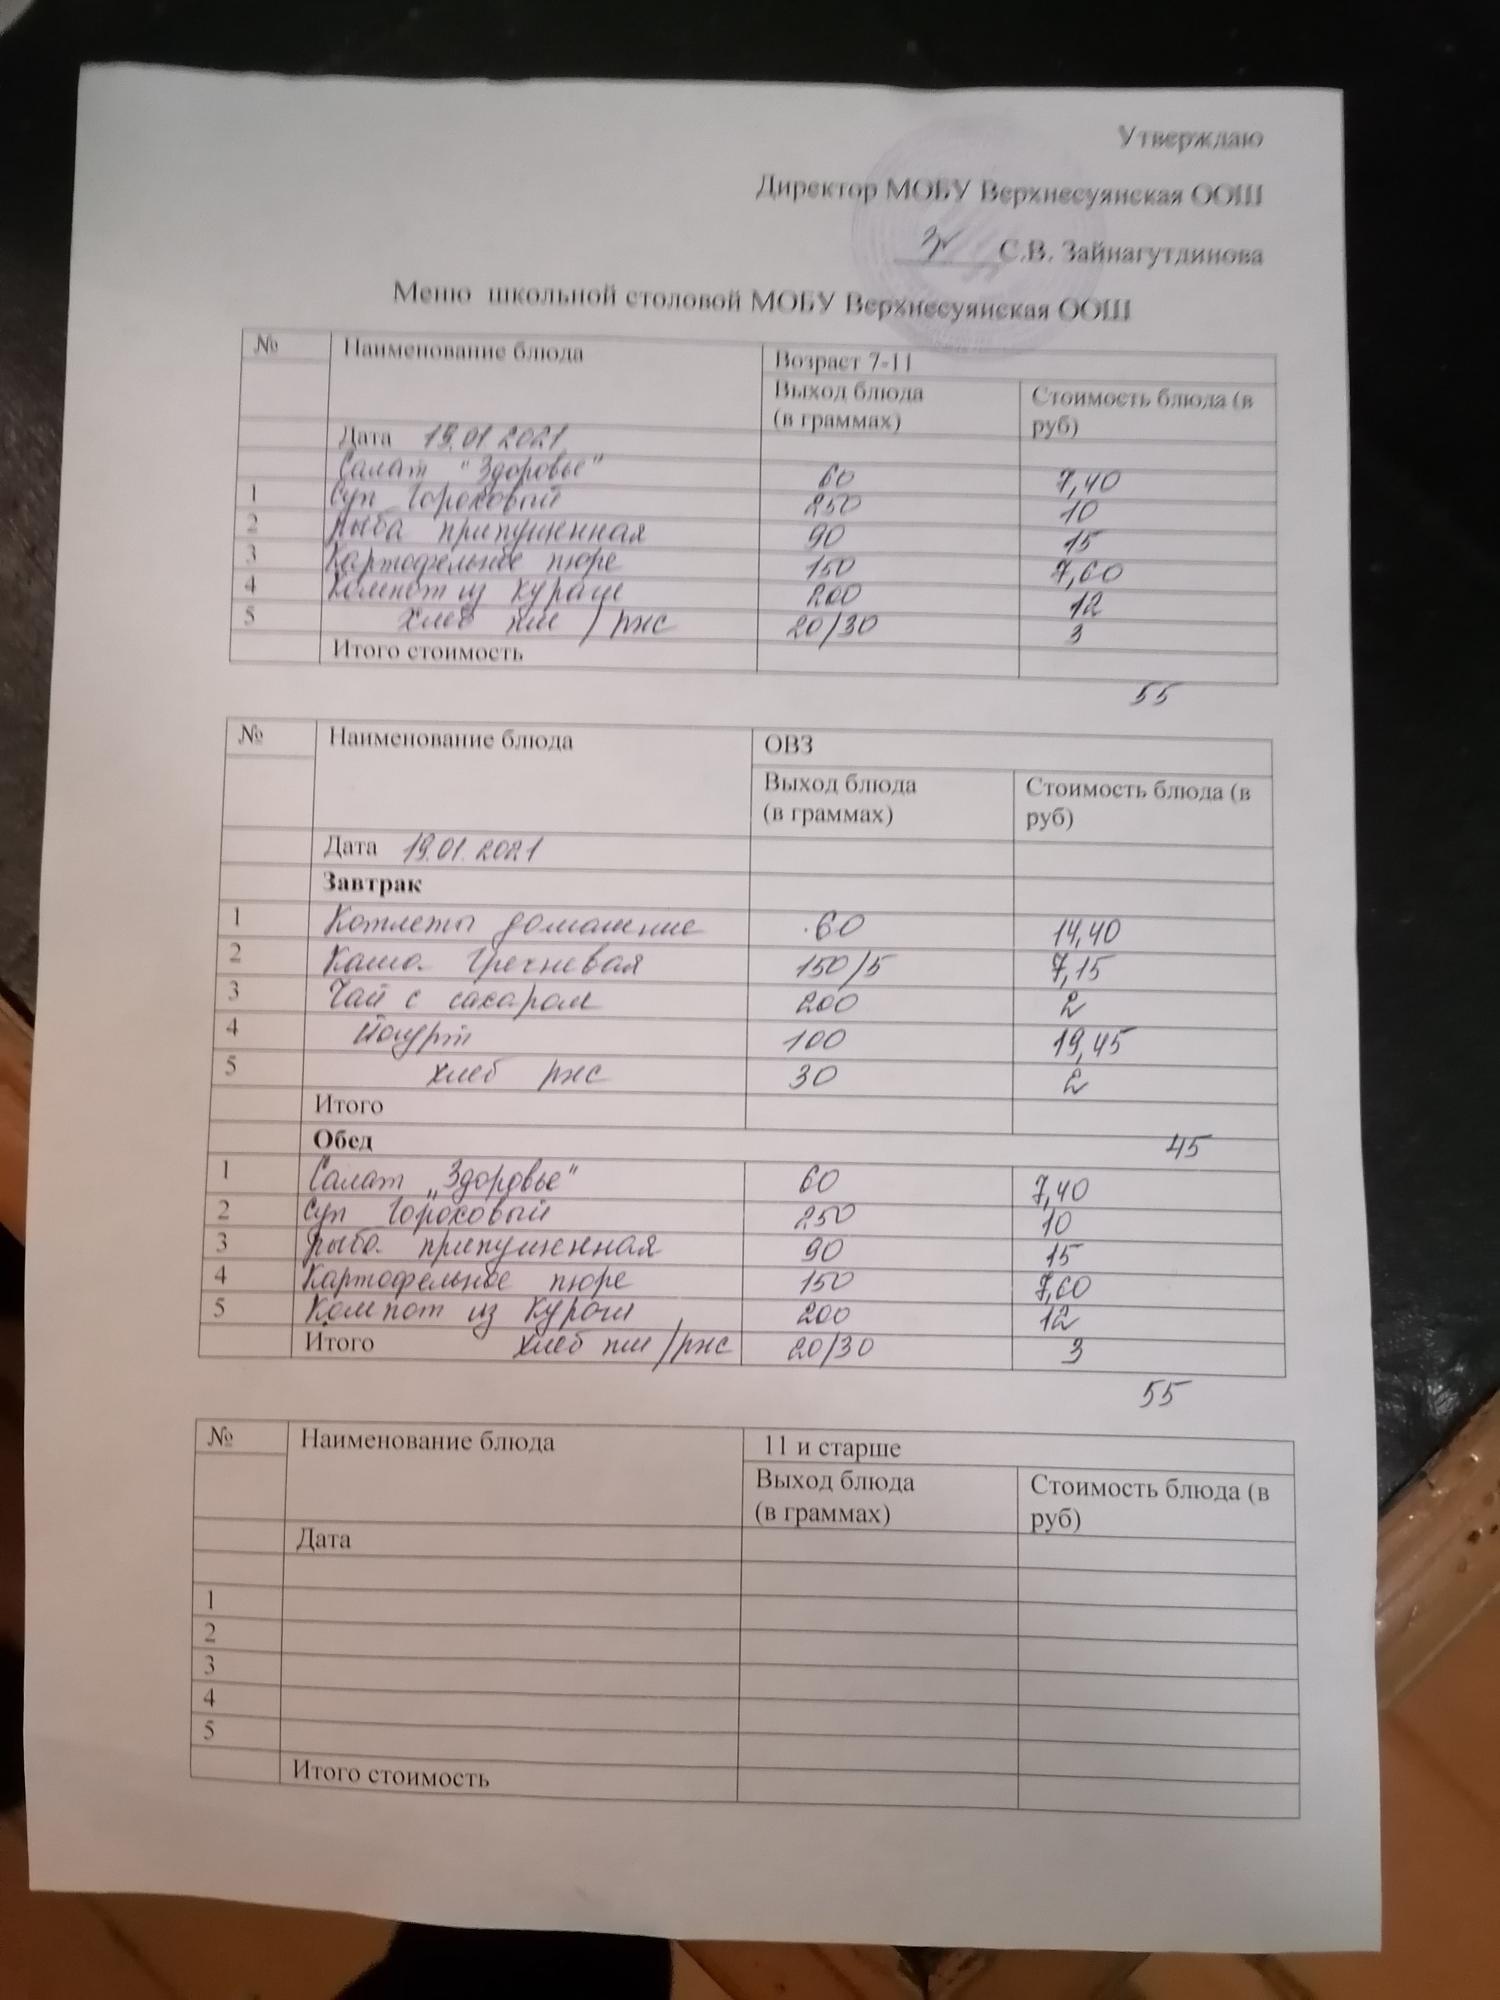 Утверждаю
Директор МОБУ Верхнесуянская ООШ
С.В. Зайнагутдинова
Меню школьной столовой МОБУ Верхнесуянская ООШ
№ Наименование блюда Возраст 7-11
Выход блюда (в граммах) Стоимость блюда (в руб)
Дата 19.01.2021
Салат "Здоровье" 60 7,40
1 Суп Гороховый 250 10
2 Рыба припущенная 90 15
3 Картофельное пюре 150 7,60
4 Компот из Кураги 200 12
5 Хлеб пш/рж 20/30 3
Итого стоимость
55
№ Наименование блюда ОВЗ
Выход блюда (в граммах) Стоимость блюда (в руб)
Дата 19.01.2021
Завтрак
1 Котлеты домашние 60 14,40
2 Каша Гречневая 150/5 7,15
3 Чай с сахаром 200 2
4 Йогурт 100 19,45
5 хлеб ржс 30 2
Итого
Обед 45
1 Салат „Здоровье" 60 7,40
2 Суп Гороховый 250 10
3 Рыба припущенная 90 15
4 Картофельное пюре 150 7,60
5 Компот из Кураги 200 12
Итого хлеб пш/ржс 20/30 3
55
№ Наименование блюда 11 и старше
Выход блюда (в граммах) Стоимость блюда (в руб)
Дата
1
2
3
4
5
Итого стоимость